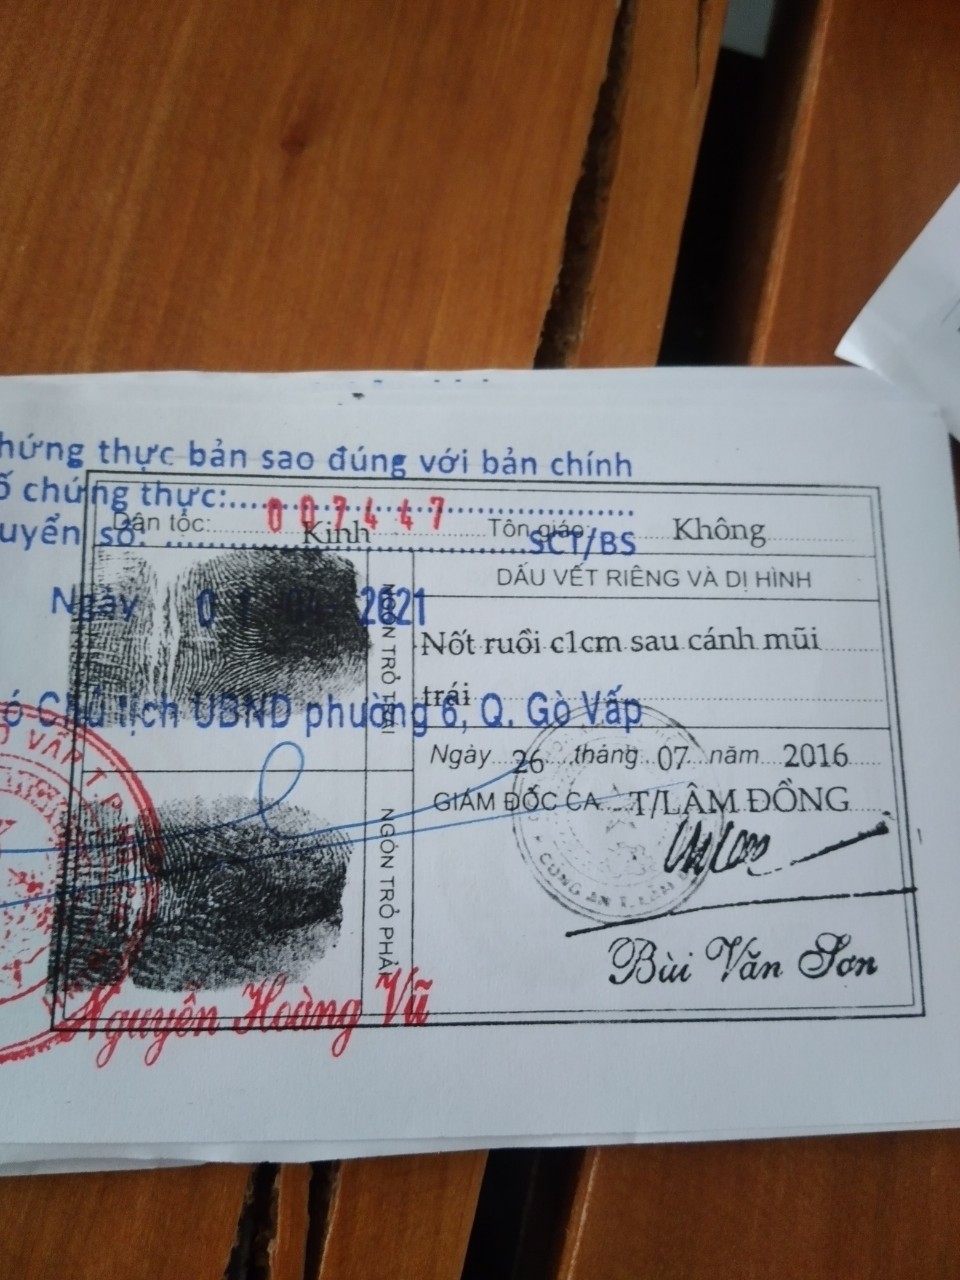 hứng thực bản sao đúng với bản chính
ố chứng thực: 007447
uyển số: SCT/BS
Dân tộc: Kinh Tôn giáo: Không
DẤU VẾT RIÊNG VÀ DỊ HÌNH
Ngày 01 2021
NGÓN TRỎ TRÁI
Nốt ruồi c1cm sau cánh mũi
trái
ó Chủ tịch UBND phường 6, Q. Gò Vấp
Ngày 26 tháng 07 năm 2016
GIÁM ĐỐC CA T/LÂM ĐỒNG
NGÓN TRỎ PHẢI
CÔNG AN T. LÂM
Bùi Văn Sơn
Nguyễn Hoàng Vũ